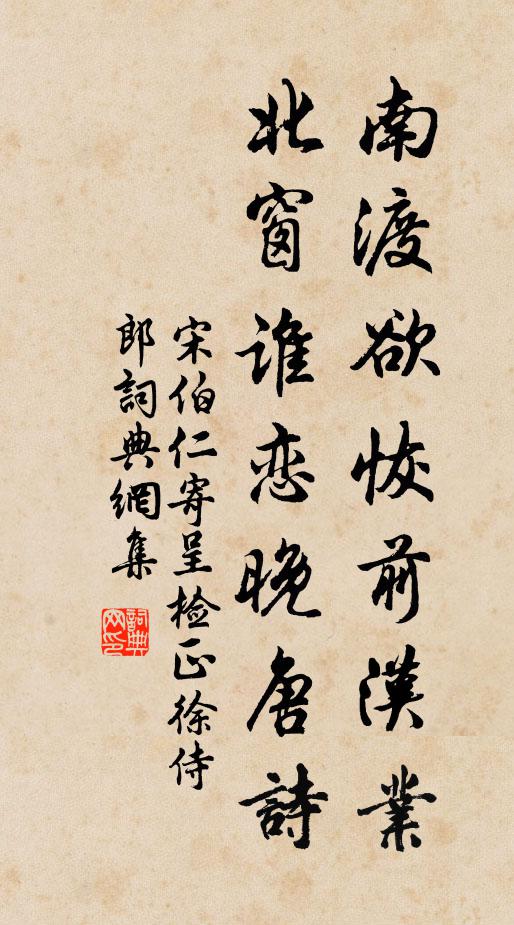 南渡欲恢前漢業
北窗谁恋晚唐詩
宋伯仁寄呈检正徐侍
郎詞典網集
詞典网印